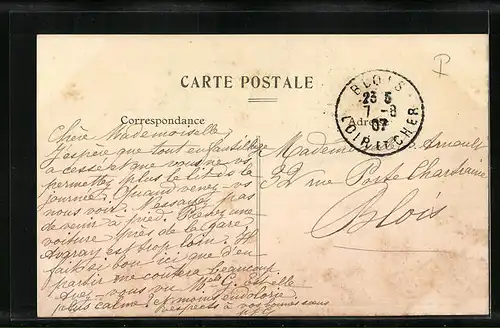 CARTE POSTALE
Correspondance
BLOIS
23 5
7 - 8
07
LOIR-ET-CHER
P
Chère Mademoiselle
J'espère que tout enfantillage
a cessé et que vous ne vs
permettez plus le lit de la
journée. Quand venez-vs
nous voir. N'essayez pas
de venir à pied. Prenez une
voiture près de la gare
Avaray est trop loin. Il
fait si bon ici que d'en
partir me coûtera beaucoup.
Avez-vous vu Melle G. est-elle
plus calme et moins endolorie
respects à vos bonnes sœurs
Mademoiselle Arnault
32 rue Porte Chartraine
Blois